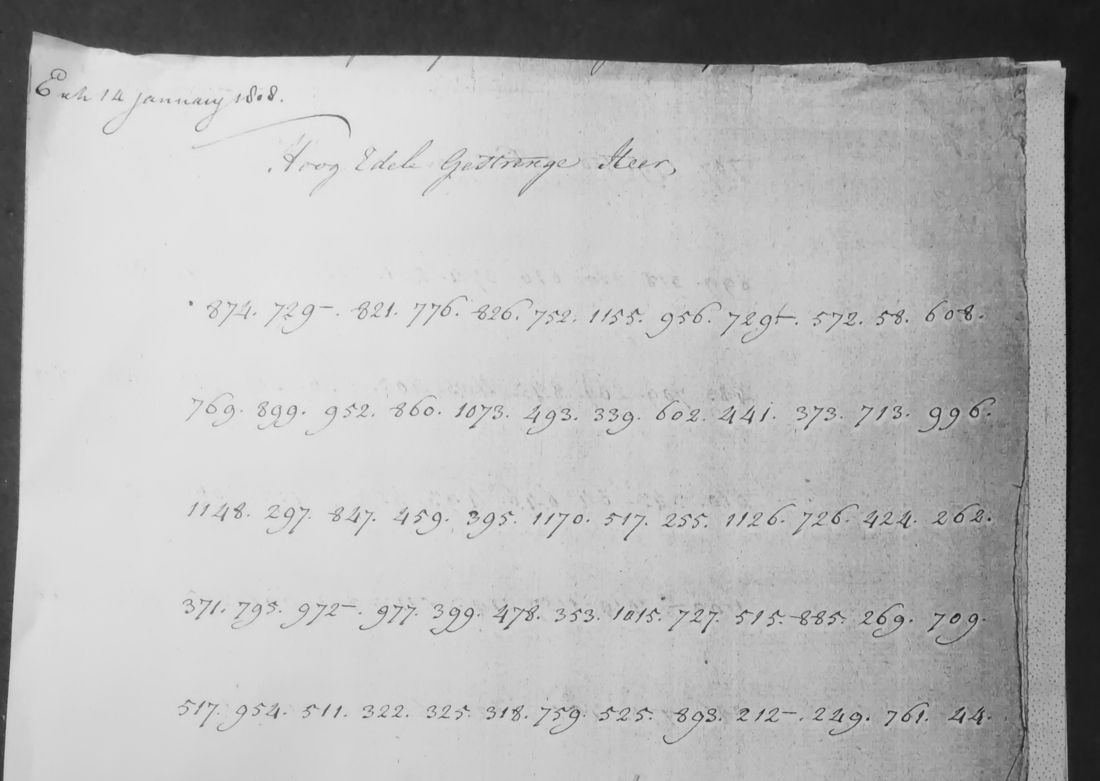 Exh 14 january 1808.
Hoog Edele Gestrenge Heer,
874. 729-. 821. 776. 826. 752. 1155. 956. 729t. 572. 58. 608.
769. 899. 952. 860. 1073. 493. 339. 602. 441. 373. 713. 996.
1148. 297. 847. 459. 395. 1170. 517. 255. 1126. 726. 424. 262.
371. 795. 972-. 977. 399. 478. 353. 1015. 727. 515. 885. 269. 709.
517. 954. 511. 322. 325. 318. 759. 525. 893. 212-. 249. 761. 44.